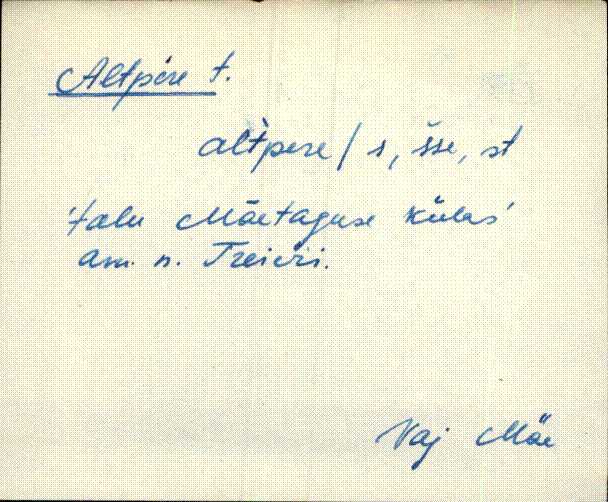 Altpere t.
al̀tpere / s, šse, st
'talu Mäetaguse külas'
am. n. Treieri.
Vaj Mäe